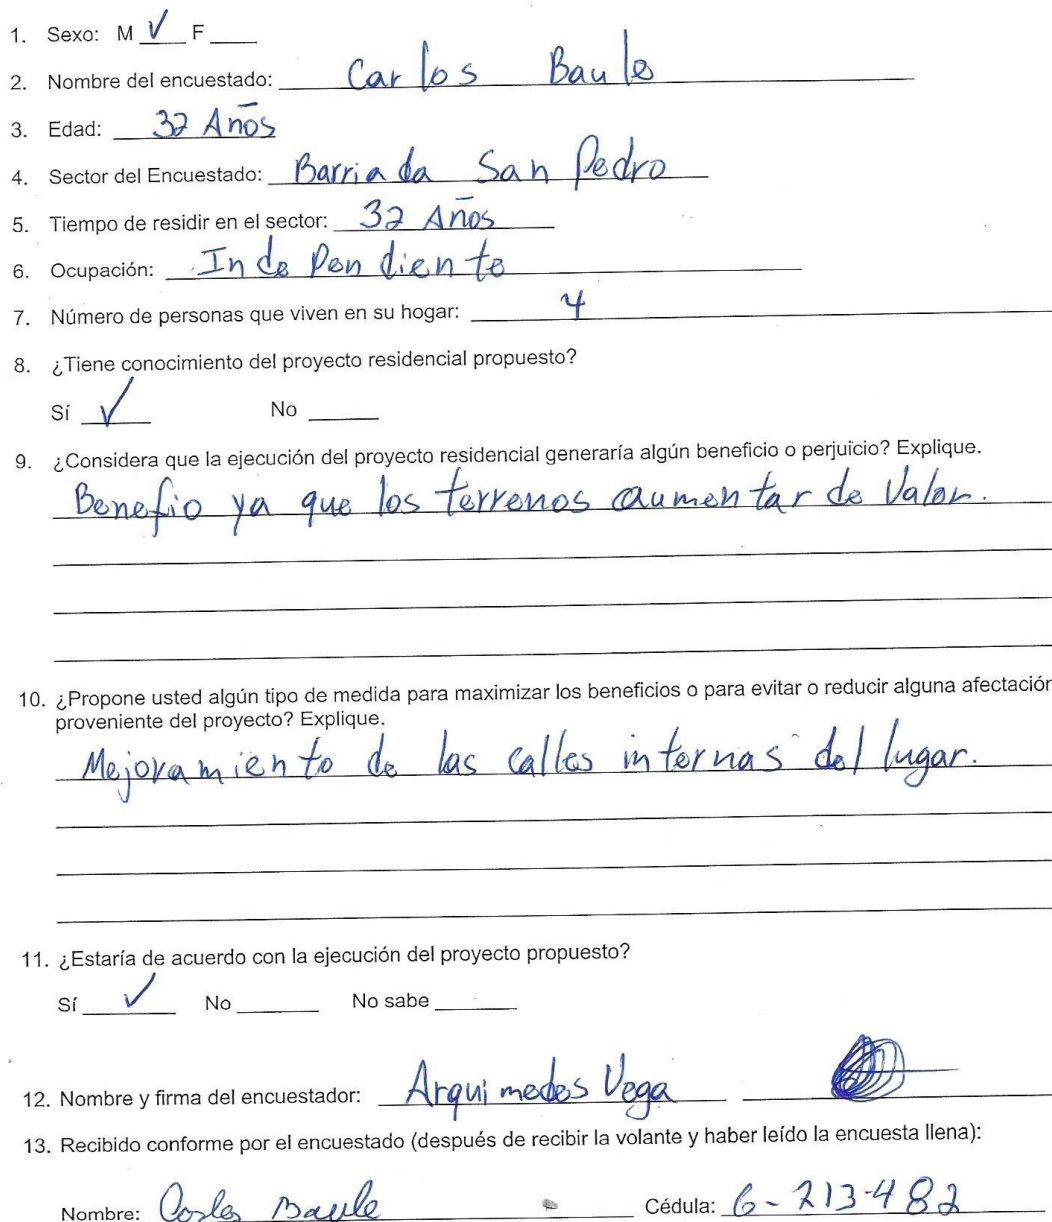 1. Sexo: M √ F ____
2. Nombre del encuestado: Carlos Baule
3. Edad: 32 Años
4. Sector del Encuestado: Barriada San Pedro
5. Tiempo de residir en el sector: 32 Años
6. Ocupación: Independiente
7. Número de personas que viven en su hogar: 4
8. ¿Tiene conocimiento del proyecto residencial propuesto?
Sí √ No ____
9. ¿Considera que la ejecución del proyecto residencial generaría algún beneficio o perjuicio? Explique.
Benefio ya que los terrenos aumentar de Valor.
10. ¿Propone usted algún tipo de medida para maximizar los beneficios o para evitar o reducir alguna afectación
proveniente del proyecto? Explique.
Mejoramiento de las calles internas del lugar.
11. ¿Estaría de acuerdo con la ejecución del proyecto propuesto?
Sí √ No ____ No sabe ____
12. Nombre y firma del encuestador: Arquimedes Vega
13. Recibido conforme por el encuestado (después de recibir la volante y haber leído la encuesta llena):
Nombre: Carlos Baule Cédula: 6-213-482